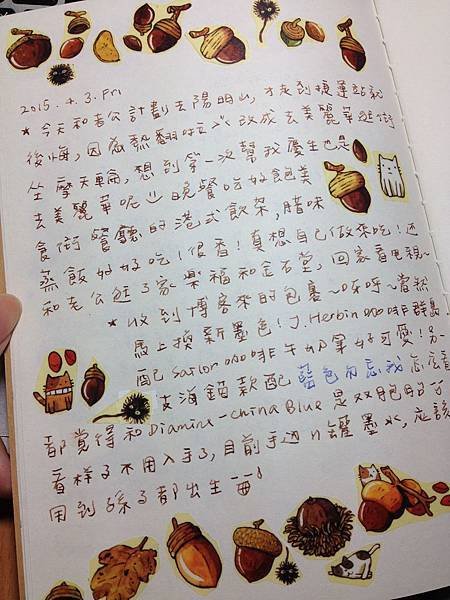 2015.4.3.Fri
★今天和老公計劃去陽明山,才走到捷運站就
後悔,因為熱翻啦>"<改成去美麗華逛街
坐摩天輪,想到第一次幫我慶生也是
去美麗華呢!:)晚餐吃好飽美
食街餐廳的港式飲茶,腊味
蒸飯好好吃!很香!真想自己做來吃!還
和老公逛了家樂福和金石堂,回家看電視~
★收到博客來的包裹~呀呼~當然
馬上換新墨色!J.Herbin 咖啡群島
配 Sailor 咖啡牛奶筆好可愛!另一
支海錨款配 藍色勿忘我 怎麼看
都覺得和Diamine-China Blue 是双胞胎的了
看樣子不用入手了,目前手邊n罐墨水,應該
用到孫子都出生==!